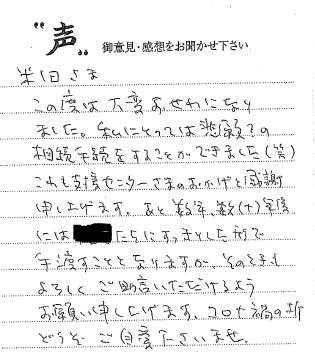 "声" 御意見・感想をお聞かせ下さい
米田さま
この度は大変おせわになり
ました。私にとっては悲願?の
相続手続をすることができました(笑)
これも支援センターさまのおかげと感謝
申し上げます。あと数年、数(十)年後
には たちにすっきりとした形で
手渡すことと なりますが、そのときも
よろしく ご助言いただけるよう
お願い申し上げます。コロナ禍の折
どうぞ ご自愛下さいませ。